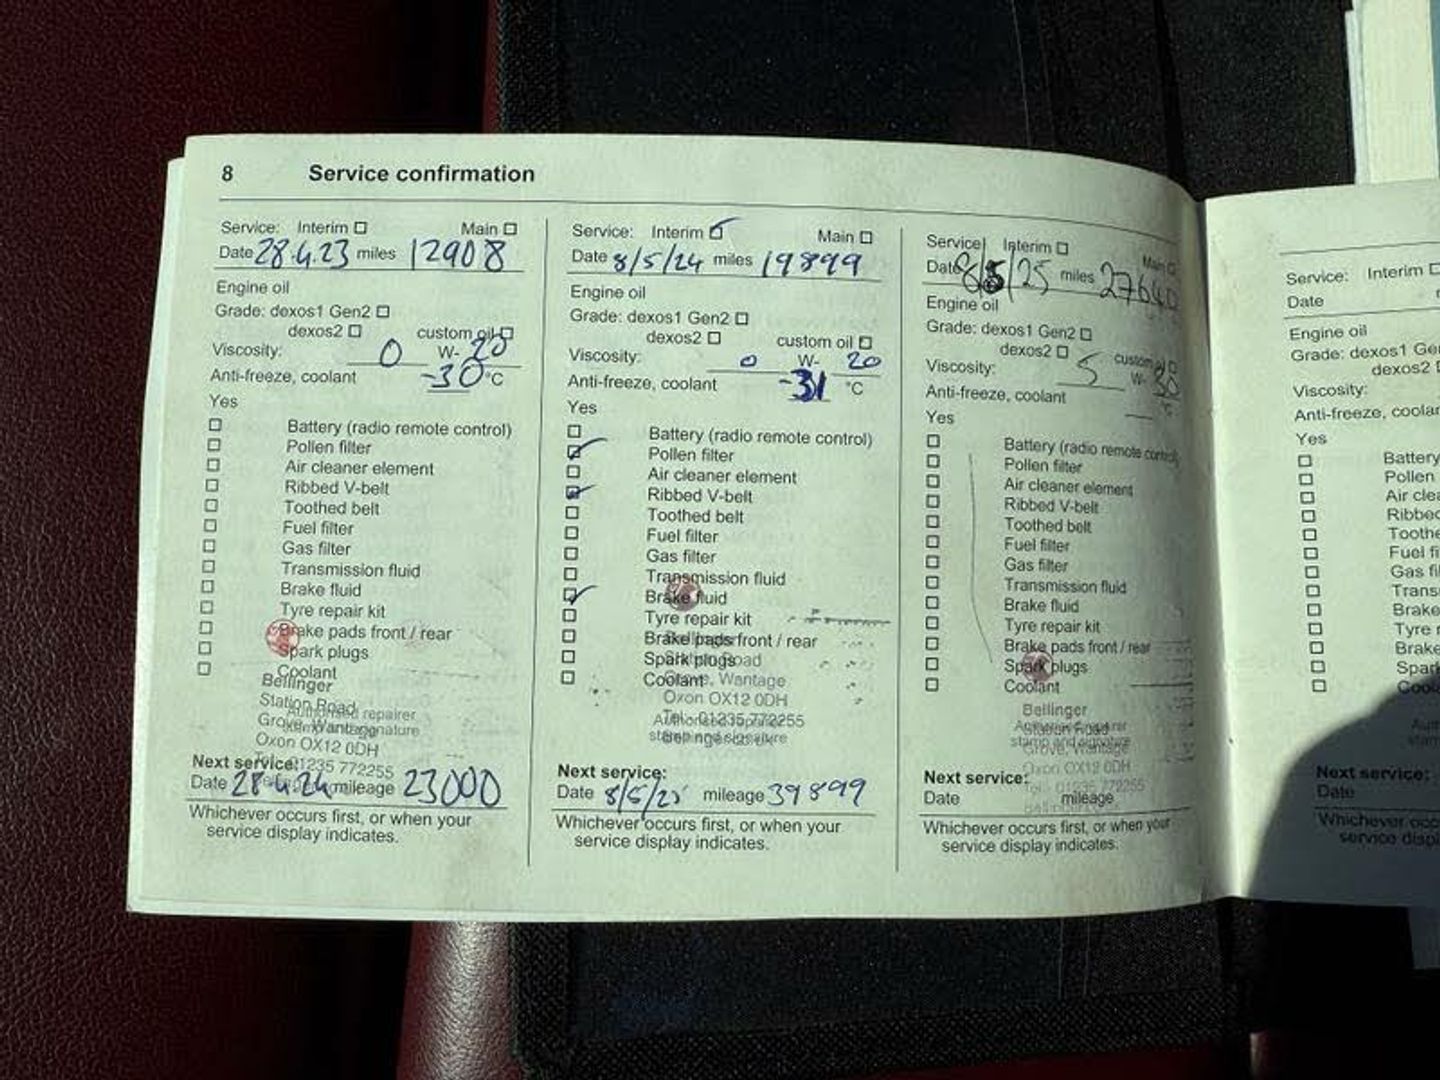 8 Service confirmation
Service: Interim Main
Date 28.4.23 miles 12908
Engine oil
Grade: dexos1 Gen2
dexos2 custom oil
Viscosity: 0 W- 20
Anti-freeze, coolant -30 °C
Yes
Battery (radio remote control)
Pollen filter
Air cleaner element
Ribbed V-belt
Toothed belt
Fuel filter
Gas filter
Transmission fluid
Brake fluid
Tyre repair kit
Brake pads front / rear
Spark plugs
Coolant
Bellinger
Station Road
Authorised repairer
Grove, Wantage
stamp and signature
Oxon OX12 0DH
Tel: 01235 772255
Next service:
Date 28.4.24 mileage 23000
Whichever occurs first, or when your
service display indicates.
Service: Interim Main
Date 8/5/24 miles 19899
Engine oil
Grade: dexos1 Gen2
dexos2 custom oil
Viscosity: 0 W- 20
Anti-freeze, coolant -31 °C
Yes
Battery (radio remote control)
Pollen filter
Air cleaner element
Ribbed V-belt
Toothed belt
Fuel filter
Gas filter
Transmission fluid
Brake fluid
Tyre repair kit
Brake pads front / rear
Bellinger
Spark plugs
Station Road
Coolant
Grove, Wantage
Oxon OX12 0DH
Tel: 01235 772255
Authorised repairer
stamp and signature
Next service:
Date 8/5/25 mileage 39899
Whichever occurs first, or when your
service display indicates.
Service: Interim Main
Date 8/5/25 miles 27640
Engine oil
Grade: dexos1 Gen2
dexos2 custom oil
Viscosity: 5 W- 30
Anti-freeze, coolant °C
Yes
Battery (radio remote control)
Pollen filter
Air cleaner element
Ribbed V-belt
Toothed belt
Fuel filter
Gas filter
Transmission fluid
Brake fluid
Tyre repair kit
Brake pads front / rear
Spark plugs
Coolant
Bellinger
Authorised repairer
Station Road
stamp and signature
Grove, Wantage
Oxon OX12 0DH
Tel: 01235 772255
Next service:
Date mileage
Whichever occurs first, or when your
service display indicates.
Service: Interim
Date
Engine oil
Grade: dexos1 Ge
dexos2
Viscosity:
Anti-freeze, coolan
Yes
Battery
Pollen
Air clea
Ribbed
Toothe
Fuel fi
Gas fil
Trans
Brake
Tyre r
Brake
Spark
Cool
Auth
stam
Next service:
Date
Whichever occ
service displ